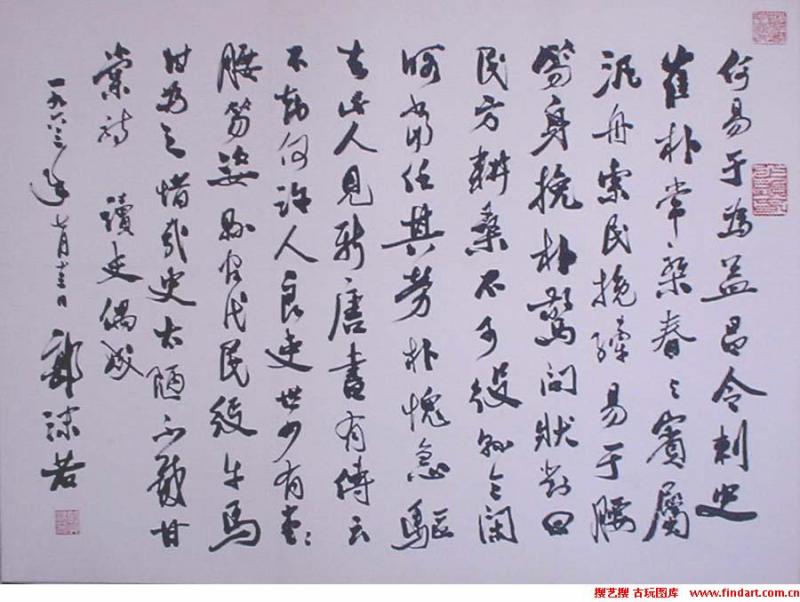 何易于為益昌令刺史
崔朴常乘春与賓屬
汎舟索民挽繂易于腰
笏身挽朴驚問狀對曰
民方耕桑不可役縣令閑
當任其勞朴愧急驅
去此人見新唐書有傳云
不知何許人良吏世少有堂々
腰笏姿縣官代民役牛馬
甘為之惜哉史太陋不載甘
棠詩 讀史偶成
一九六三年七月十三日 郭沫若
搜艺搜 古玩图库 www.findart.com.cn